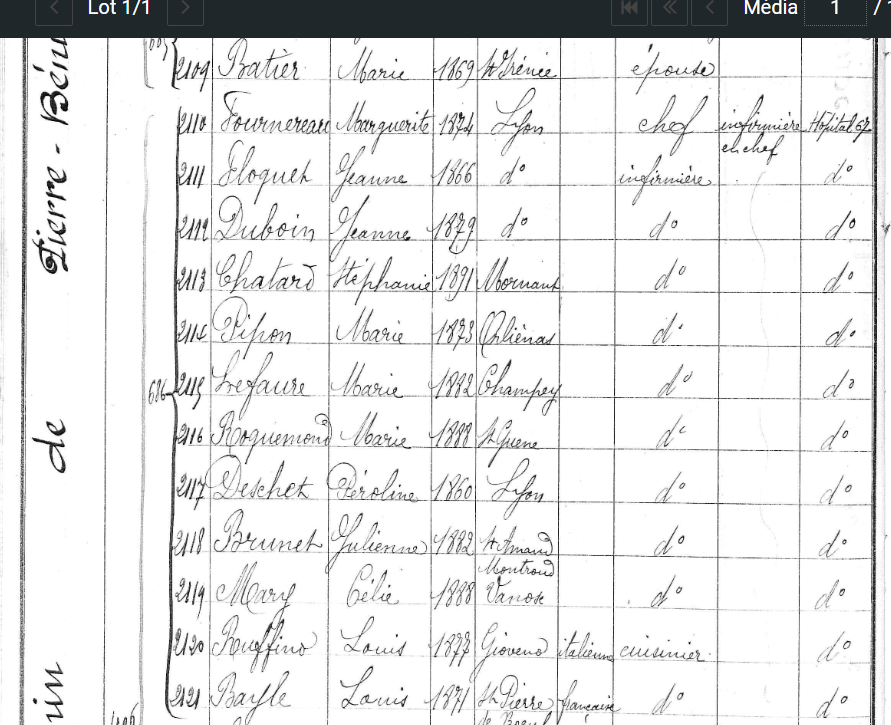 Lot 1/1 Média 1 / 1
Pierre - Béni
de
in
2109 Batier Marie 1869 St Irénée épouse
2110 Fournereau Marguerite 1874 Lyon chef infirmière Hôpital 67
en chef
2111 Floquet Jeanne 1866 d° infirmière d°
2112 Duboin Jeanne 1879 d° d° d°
2113 Chatard Stéphanie 1891 Mornant d° d°
2114 Pipon Marie 1873 Orliénas d° d°
686 2115 Lrefaure Marie 1882 Champey d° d°
2116 Roquemond Marie 1888 d° d°
2117 Deschet Péroline 1860 Lyon d° d°
2118 Brunet Julienne 1882 St Amand d° d°
Montrond
2119 Mary Célie 1888 Vanosc d° d°
2120 Ruffino Louis 1877 Gioveno italienne cuisinier d°
2121 Bayle Louis 1871 St Pierre française d° d°
de Boeuf